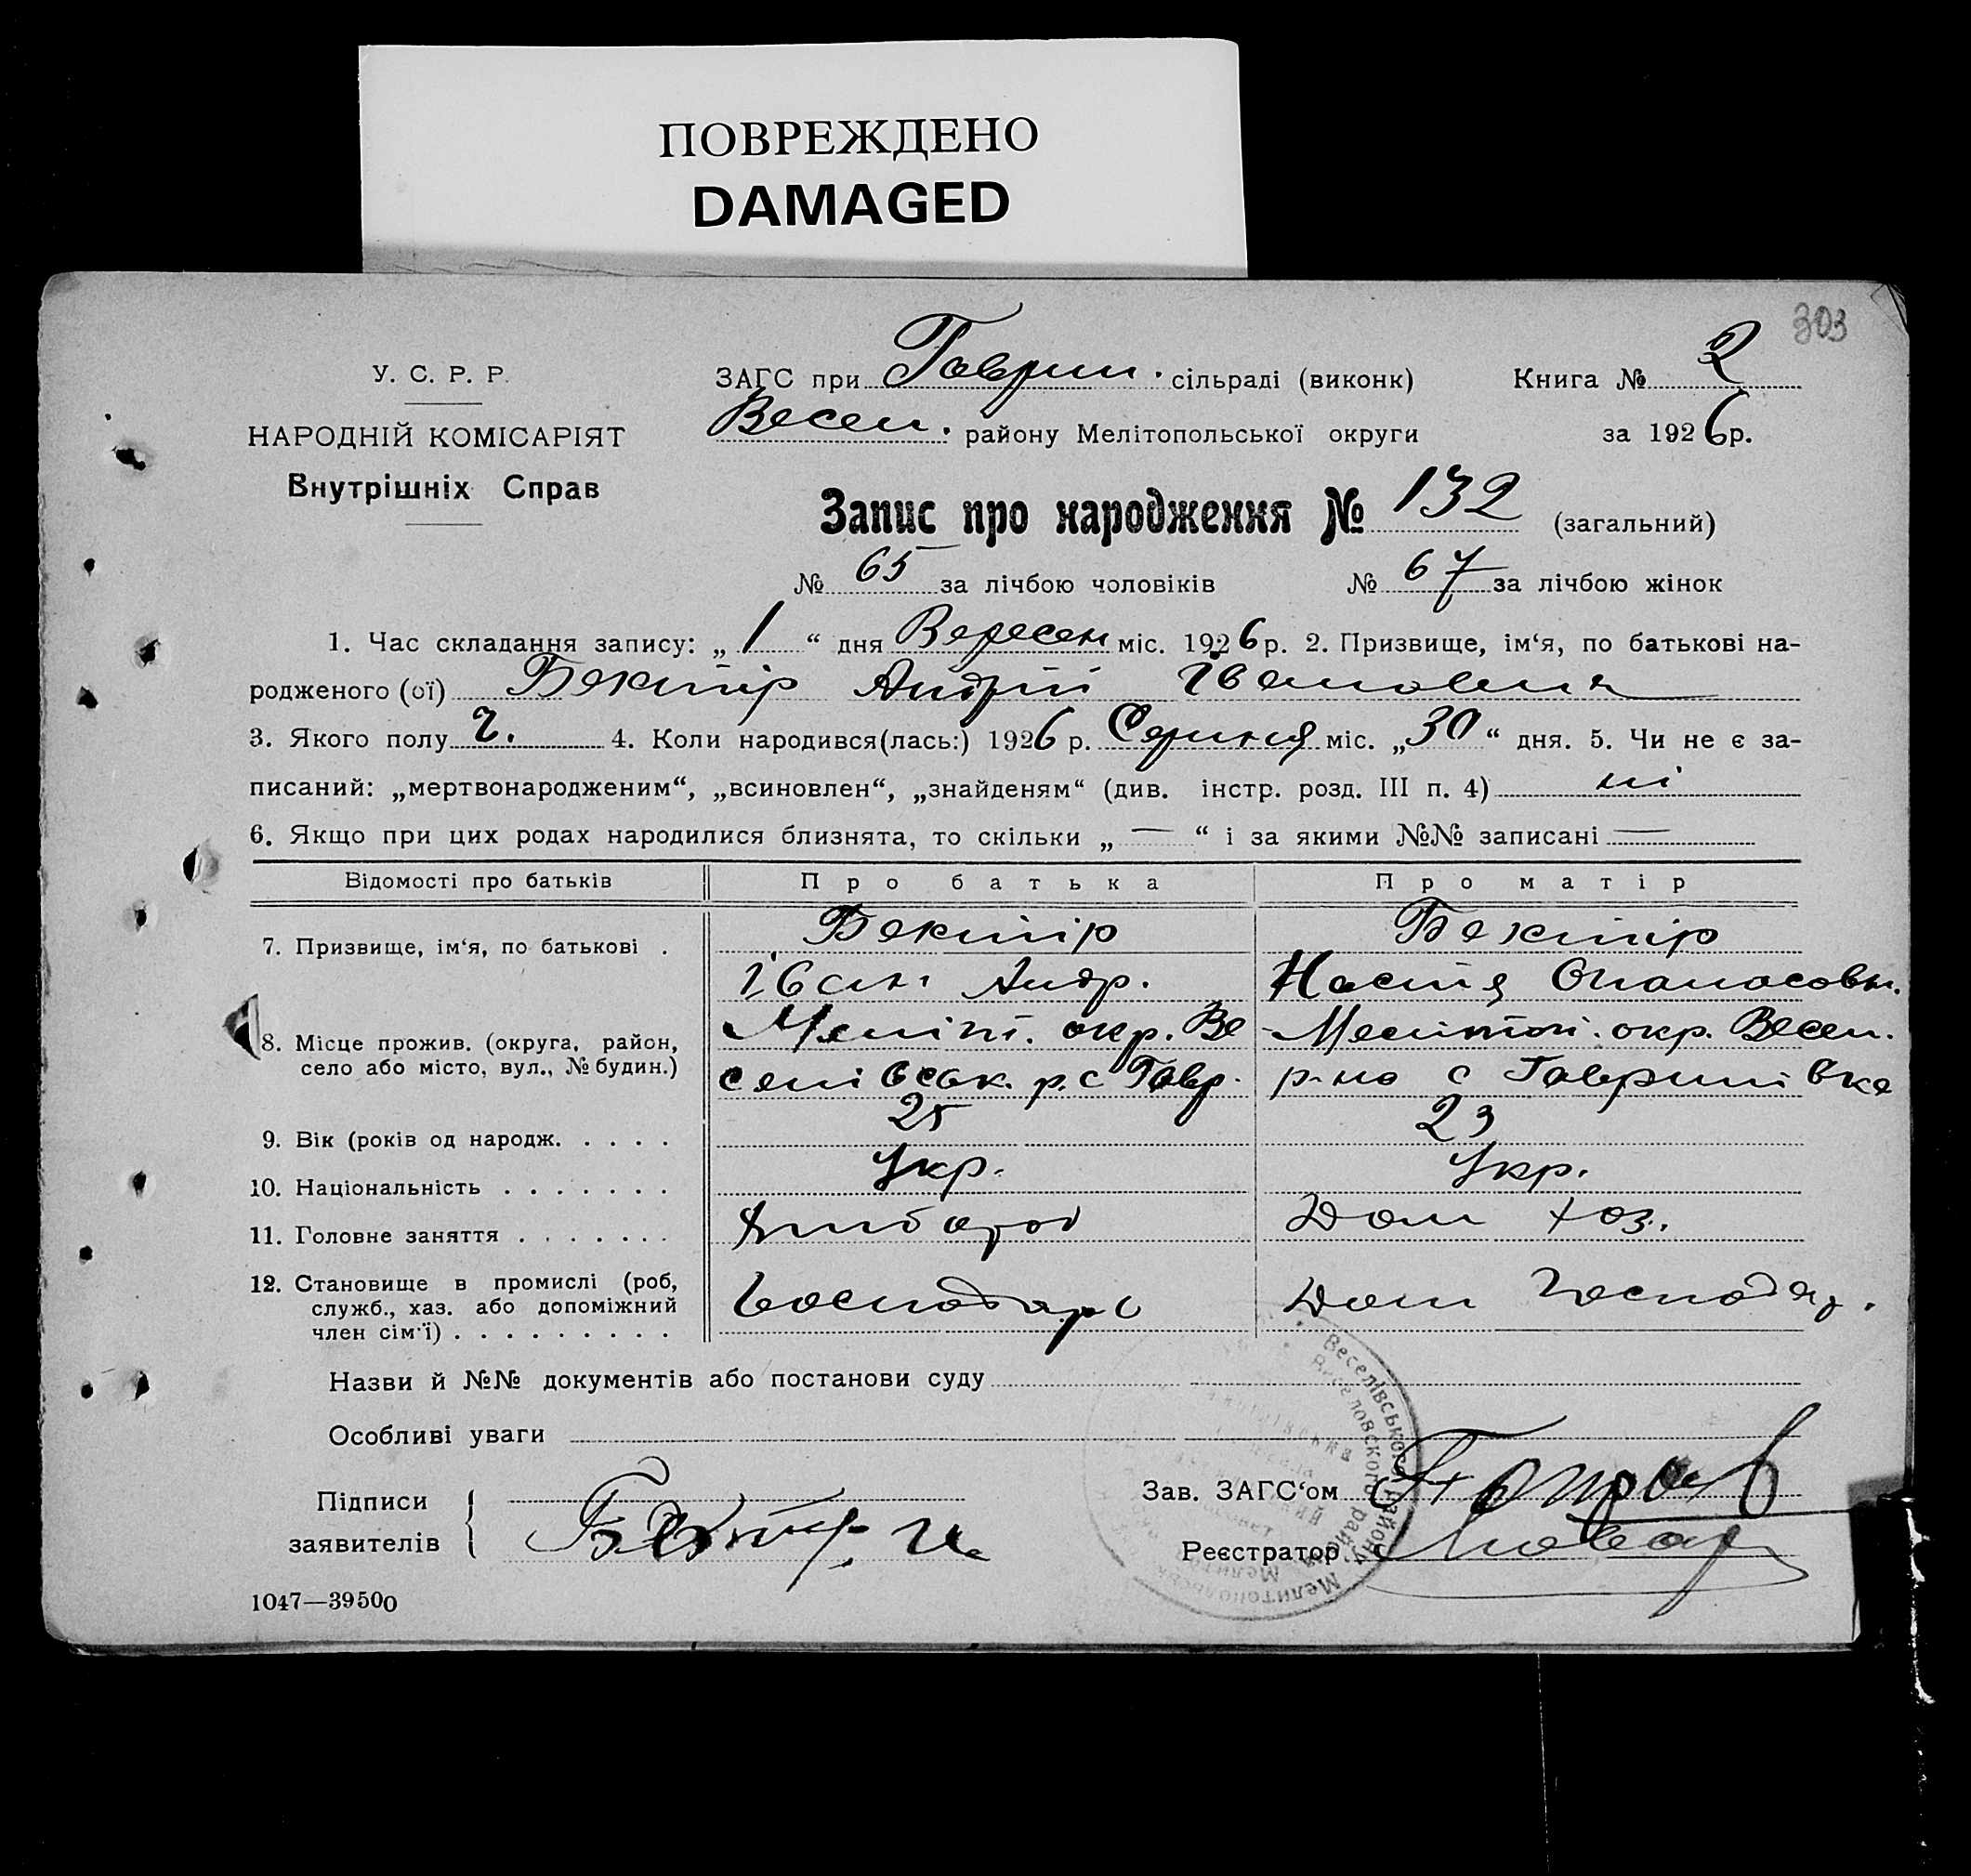 ПОВРЕЖДЕНО
DAMAGED
303
У. С. Р. Р.
НАРОДНІЙ КОМІСАРІЯТ
Внутрішніх Справ
ЗАГС при Гаврил. сільраді (виконк) Книга № 2
Весел. району Мелітопольської округи за 1926 р.
Запис про народження № 132 (загальний)
№ 65 за лічбою чоловіків № 67 за лічбою жінок
1. Час складання запису: „ 1 “ дня Вересен міс. 1926 р. 2. Призвище, ім‘я, по батькові на-
родженого (ої) Бектір Андрій Іванович
3. Якого полу ч. 4. Коли народився(лась:) 1926 р. Серпня міс. „30“ дня. 5. Чи не є за-
писаний: „мертвонародженим“, „всиновлен“, „знайденям“ (див. інстр. розд. III п. 4) ні
6. Якщо при цих родах народилися близнята, то скільки „ — “ і за якими №№ записані —
Відомості про батьків Про батька Про матір
7. Призвище, ім‘я, по батькові . Бектір Бектір
Іван Андр. Настя Опанасовн.
8. Місце прожив. (округа, район, Меліт. окр. Ве Мелітоп. окр. Весел.
село або місто, вул., № будин.) селівськ. р. с Гавр. р-на с Гаврилівка
9. Вік (років од народж. . . . . 25 23
10. Національність . . . . . . . Укр. Укр.
11. Головне заняття . . . . . . . Хлібороб Дом хоз.
12. Становище в промислі (роб, Господарь Дом Господар.
служб., хаз. або допоміжний
член сім‘ї) . . . . . . . . . .
Назви й №№ документів або постанови суду
Особливі уваги
Підписи Зав. ЗАГС‘ом
заявителів Бектір И. Реєстратор
Веселівського району
Веселовского района
Мелитополь
1047—39500